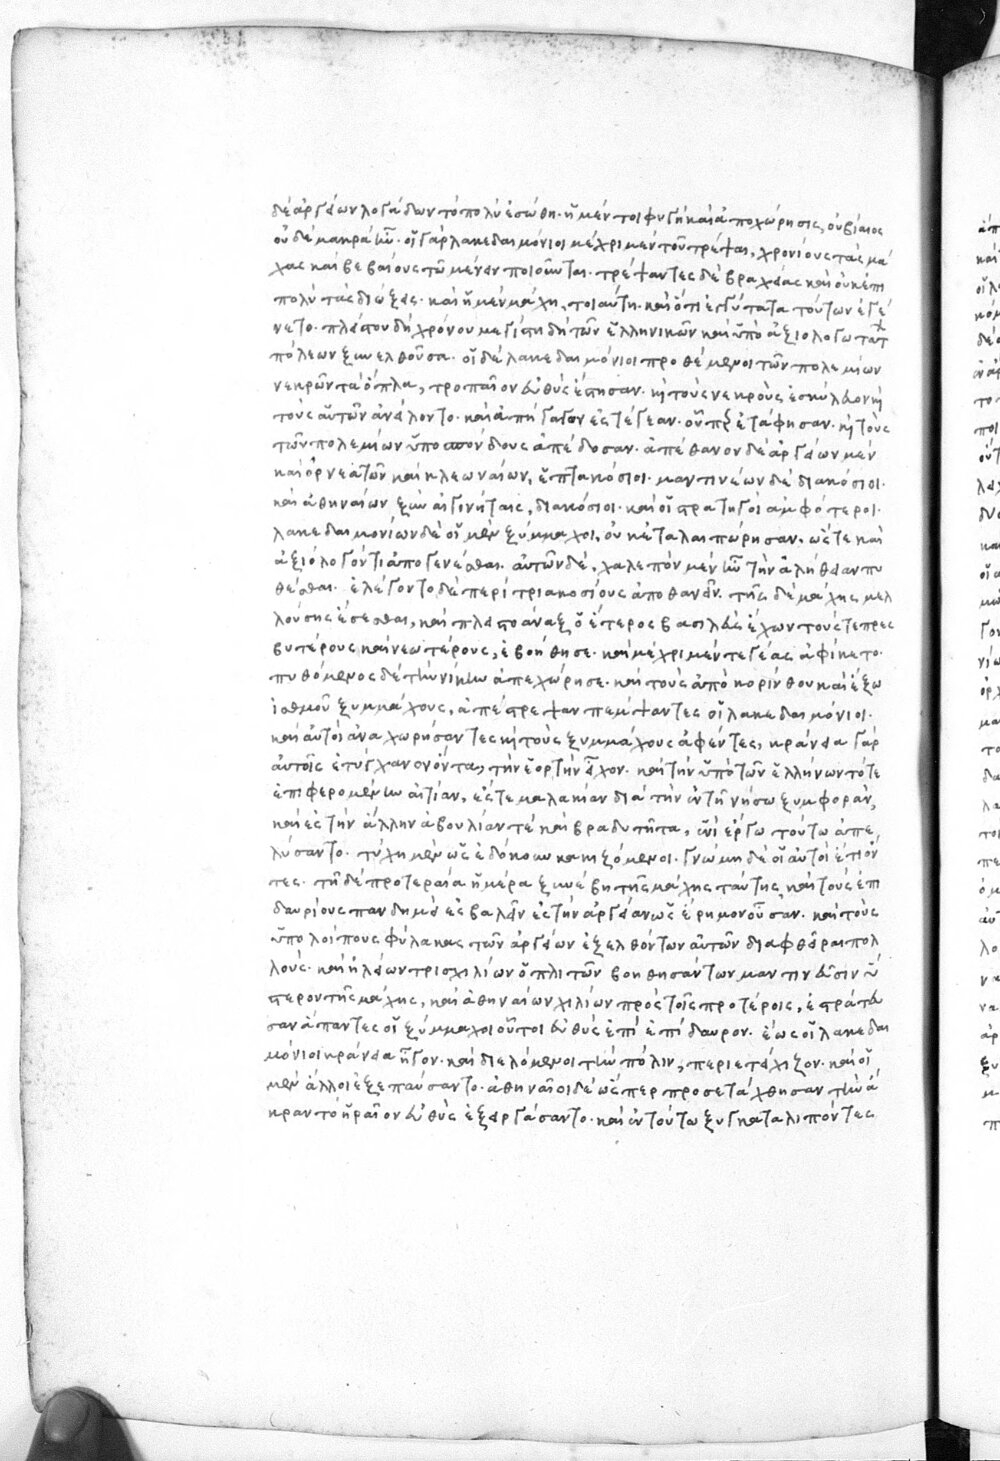 δὲ ἀργείων λογάδων τὸ πολὺ ἐσώθη· ἡ μέντοι φυγὴ καὶ ἀποχώρησις, οὐ βίαιος
οὐδὲ μακρὰ ἦν· οἱ γὰρ λακεδαιμόνιοι μέχρι μὲν τοῦ τρέψαι, χρονίους τὰς μά
χας καὶ βεβαίους τῷ μένειν ποιοῦνται· τρέψαντες δὲ βραχείας καὶ οὐκ ἐπὶ
πολὺ τὰς διώξεις· καὶ ἡ μὲν μάχη, τοιαύτη· καὶ ὅτι ἐγγύτατα τούτων ἐγέ
νετο· πλείστου δὴ χρόνου μεγίστη δὴ τῶν ἑλληνικῶν καὶ ὑπὸ ἀξιολογωτάτ
πόλεων ξυνελθοῦσα· οἱ δὲ λακεδαιμόνιοι προθέμενοι τῶν πολεμίων
νεκρῶν τὰ ὅπλα, τροπαῖον εὐθὺς ἵστησαν· κὶ τοὺς νεκροὺς ἐσκύλευον κὶ
τοὺς αὑτῶν ἀνείλοντο· καὶ ἀπήγαγον ἐς τέγεαν· οὗπερ ἐτάφησαν· κὶ τοὺς
τῶν πολεμίων ὑποσπόνδους ἀπέδοσαν· ἀπέθανον δὲ ἀργείων μὲν
καὶ ὀρνεατῶν καὶ κλεωναίων, ἑπτακόσιοι· μαντινέων δὲ διακόσιοι·
καὶ ἀθηναίων ξὺν αἰγινήταις, διακόσιοι· καὶ οἱ στρατηγοὶ ἀμφότεροι·
λακεδαιμονίων δὲ οἱ μὲν ξύμμαχοι, οὐκ ἐταλαιπώρησαν, ὥστε καὶ
ἀξιόλογόν τι ἀπογενέσθαι· αὐτῶν δὲ, χαλεπὸν μὲν ἦν τὴν ἀλήθειαν πυ
θέσθαι· ἐλέγοντο δὲ περὶ τριακοσίους ἀποθανεῖν· τῆς δὲ μάχης μελ
λούσης ἔσεσθαι, καὶ πλειστοάναξ ὁ ἕτερος βασιλεὺς ἔχων τούς τε πρεσ
βυτέρους καὶ νεωτέρους, ἐβοήθησε· καὶ μέχρι μὲν τεγέας ἀφίκετο·
πυθόμενος δὲ τὴν νίκην ἀπεχώρησε· καὶ τοὺς ἀπὸ κορίνθου καὶ ἔξω
ἰσθμοῦ ξυμμάχους, ἀπέστρεψαν πέμψαντες οἱ λακεδαιμόνιοι·
καὶ αὐτοὶ ἀναχωρήσαντες κὶ τοὺς ξυμμάχους ἀφέντες, κράνεια γὰρ
αὐτοῖς ἐτύγχανον ὄντα, τὴν ἑορτὴν ἦχον· καὶ τὴν ὑπὸ τῶν ἑλλήνων τότε
ἐπιφερομένην αἰτίαν, ἔς τε μαλακίαν διὰ τὴν ἐν τῇ νήσω ξυμφορὰν,
καὶ ἐς τὴν ἄλλην ἀβουλίαν τὲ καὶ βραδυτῆτα, ἑνὶ ἔργω τούτω ἀπε
λύσαντο· τύχη μὲν ὡς ἐδόκουν κακιζόμενοι· γνώμη δὲ οἱ αὐτοὶ ἔτι ὄν
τες· τῇ δὲ προτεραία ἡμέρα ξυνέβη τῆς μάχης ταύτης, καὶ τοὺς ἐπι
δαυρίους πανδημεὶ ἐσβαλεῖν ἐς τὴν ἀργείαν ὡς ἐρῆμον οὖσαν· καὶ τοὺς
ὑπολοίπους φύλακας τῶν ἀργείων ἐξελθόντων αὐτῶν διαφθεῖραι πολ
λοὺς· καὶ ἠλείων τρισχιλίων ὁπλιτῶν βοηθησάντων μαντινεῦσιν ὕ
στερον τῆς μάχης, καὶ ἀθηναίων χιλίων πρὸς τοῖς προτέροις, ἐστράτευ
σαν ἅπαντες οἱ ξύμμαχοι οὗτοι εὐθὺς ἐπὶ ἐπίδαυρον· ἕως οἱ λακεδαι
μόνιοι κράνεια ἦγον· καὶ διελόμενοι τὴν πόλιν, περιετείχιζον· καὶ οἱ
μὲν ἄλλοι ἐξεπαύσαντο· ἀθηναῖοι δὲ ὥσπερ προσετάχθησαν τὴν ἄ
κραν τὸ ἡραῖον εὐθὺς ἐξειργάσαντο· καὶ ἐν τούτω ξυγκαταλιπόντες